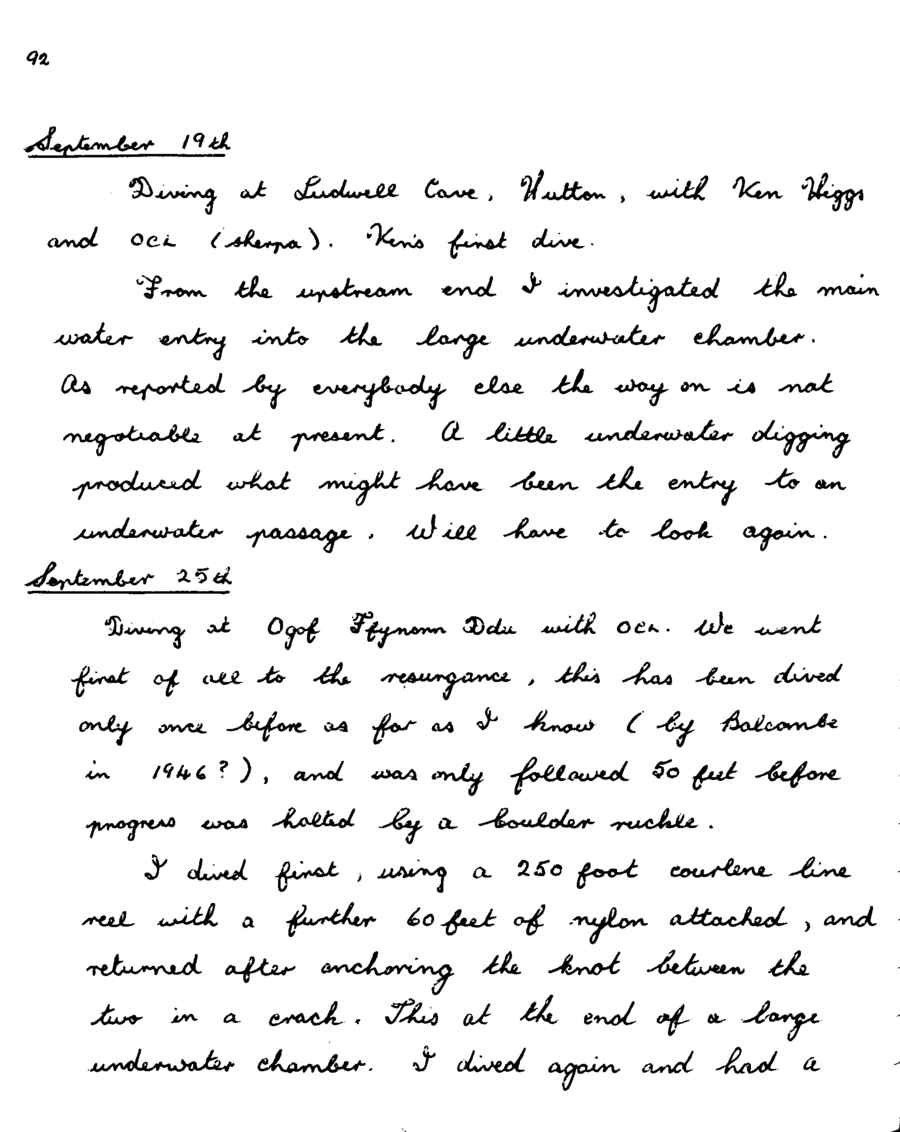 92
September 19th
Diving at Ludwell Cave, Hutton, with Ken Higgs
and OCL (sherpa). Ken's first dive.
From the upstream end I investigated the main
water entry into the large underwater chamber.
As reported by everybody else the way on is not
negotiable at present. A little underwater digging
produced what might have been the entry to an
underwater passage. Will have to look again.
September 25th
Diving at Ogof Ffynonn Ddu with OCL. We went
first of all to the resurgance, this has been dived
only once before as far as I know (by Balcombe
in 1946?), and was only followed 50 feet before
progress was halted by a boulder ruckle.
I dived first, using a 250 foot courlene line
reel with a further 60 feet of nylon attached, and
returned after anchoring the knot between the
two in a crack. This at the end of a large
underwater chamber. I dived again and had a